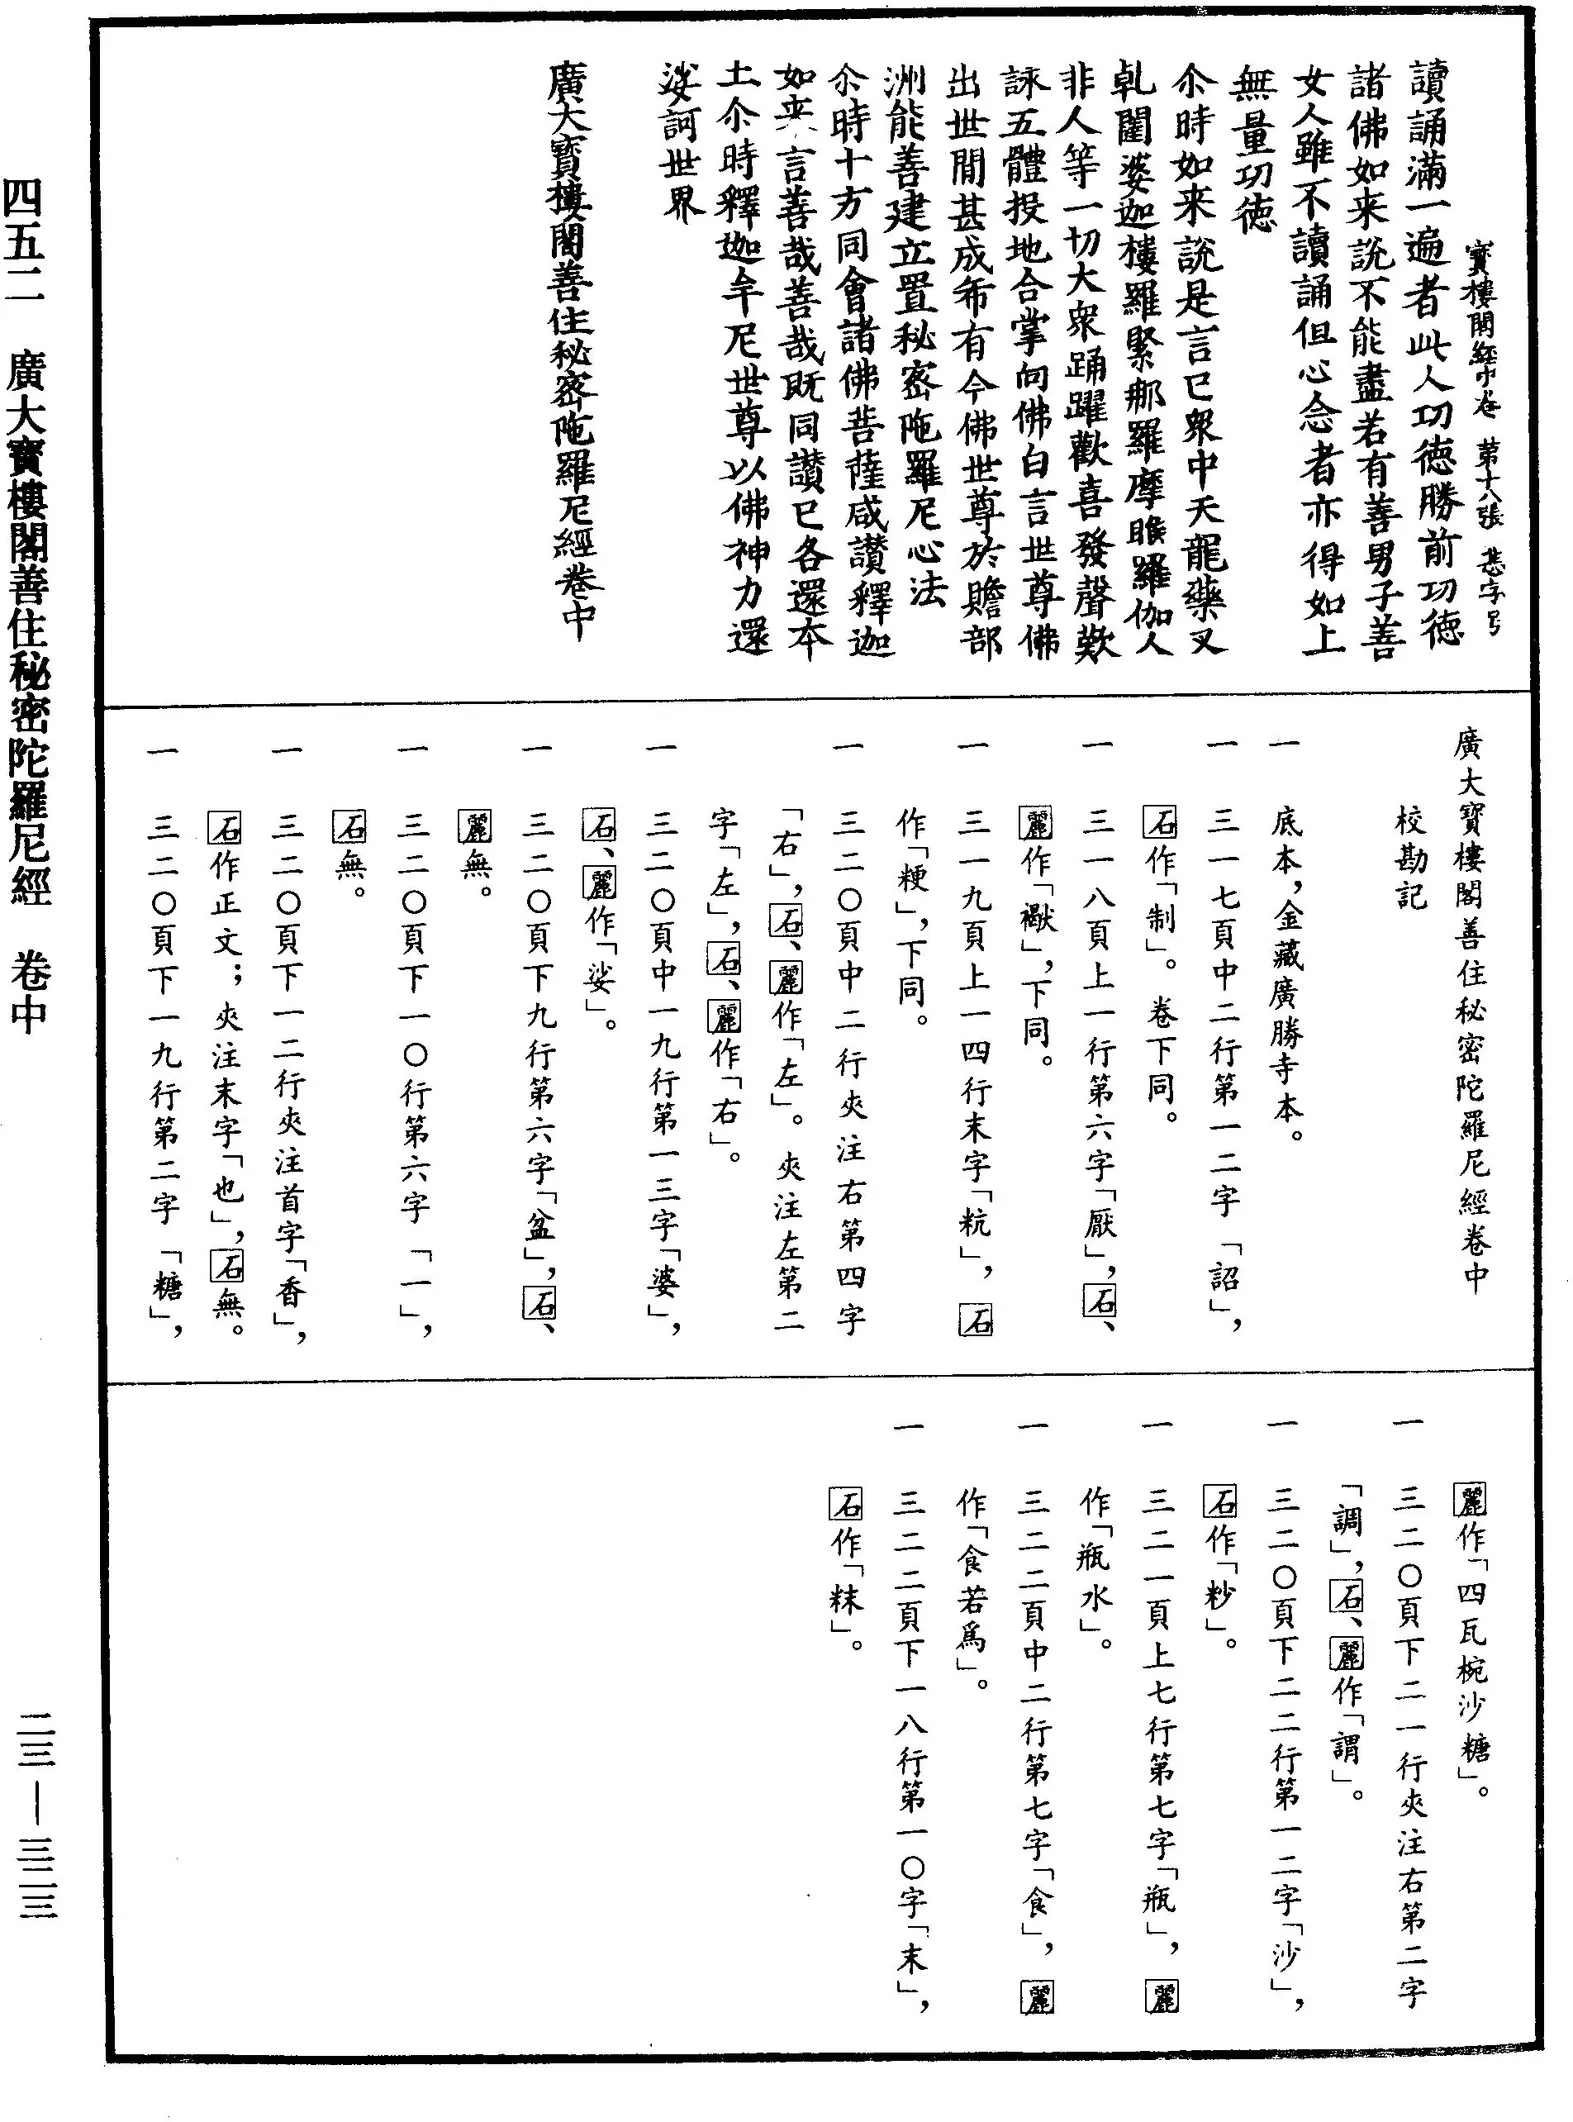 寶樓閣經中卷 第十八張 悲字号
讀誦滿一遍者此人功德勝前功徳
諸佛如来說不能盡若有善男子善
女人雖不讀誦但心念者亦得如上
無量功德
尒時如来說是言已衆中天龍藥叉
乹闥婆迦樓羅緊那羅摩睺羅伽人
非人等一切大衆踊躍歡喜發聲歎
詠五體投地合掌向佛白言世尊佛
出世間甚成希有今佛世尊於贍部
洲能善建立置秘密陁羅尼心法
尒時十方同會諸佛菩薩咸讃釋迦
如来言善哉善哉既同讃已各還本
土尒時釋迦牟尼世尊以佛神力還
娑訶世界
廣大寶樓閣善住秘密陁羅尼經卷中
廣大寶樓閣善住秘密陀羅尼經卷中
校勘記
一 底本，金藏廣勝寺本。
一 三一七頁中二行第一二字「詔」，
石作「制」。卷下同。
一 三一八頁上一行第六字「厭」，石、
麗作「禰」，下同。
一 三一九頁上一四行末字「秔」，石
作「粳」，下同。
一 三二〇頁中二行夾注右第四字
「右」，石、麗作「左」。夾注左第二
字「左」，石、麗作「右」。
一 三二〇頁中一九行第一三字「婆」，
石、麗作「娑」。
一 三二〇頁下九行第六字「盆」，石、
麗無。
一 三二〇頁下一〇行第六字「一」，
石無。
一 三二〇頁下一二行夾注首字「香」，
石作正文；夾注末字「也」，石無。
一 三二〇頁下一九行第二字「糖」，
麗作「四瓦椀沙糖」。
一 三二〇頁下二一行夾注右第二字
「調」，石、麗作「謂」。
一 三二〇頁下二二行第一二字「沙」，
石作「粆」。
一 三二一頁上七行第七字「瓶」，麗
作「瓶水」。
一 三二二頁中二行第七字「食」，麗
作「食若爲」。
一 三二二頁下一八行第一〇字「末」，
石作「粖」。
四五二 廣大寶樓閣善住秘密陀羅尼經 卷中
二三—三二三